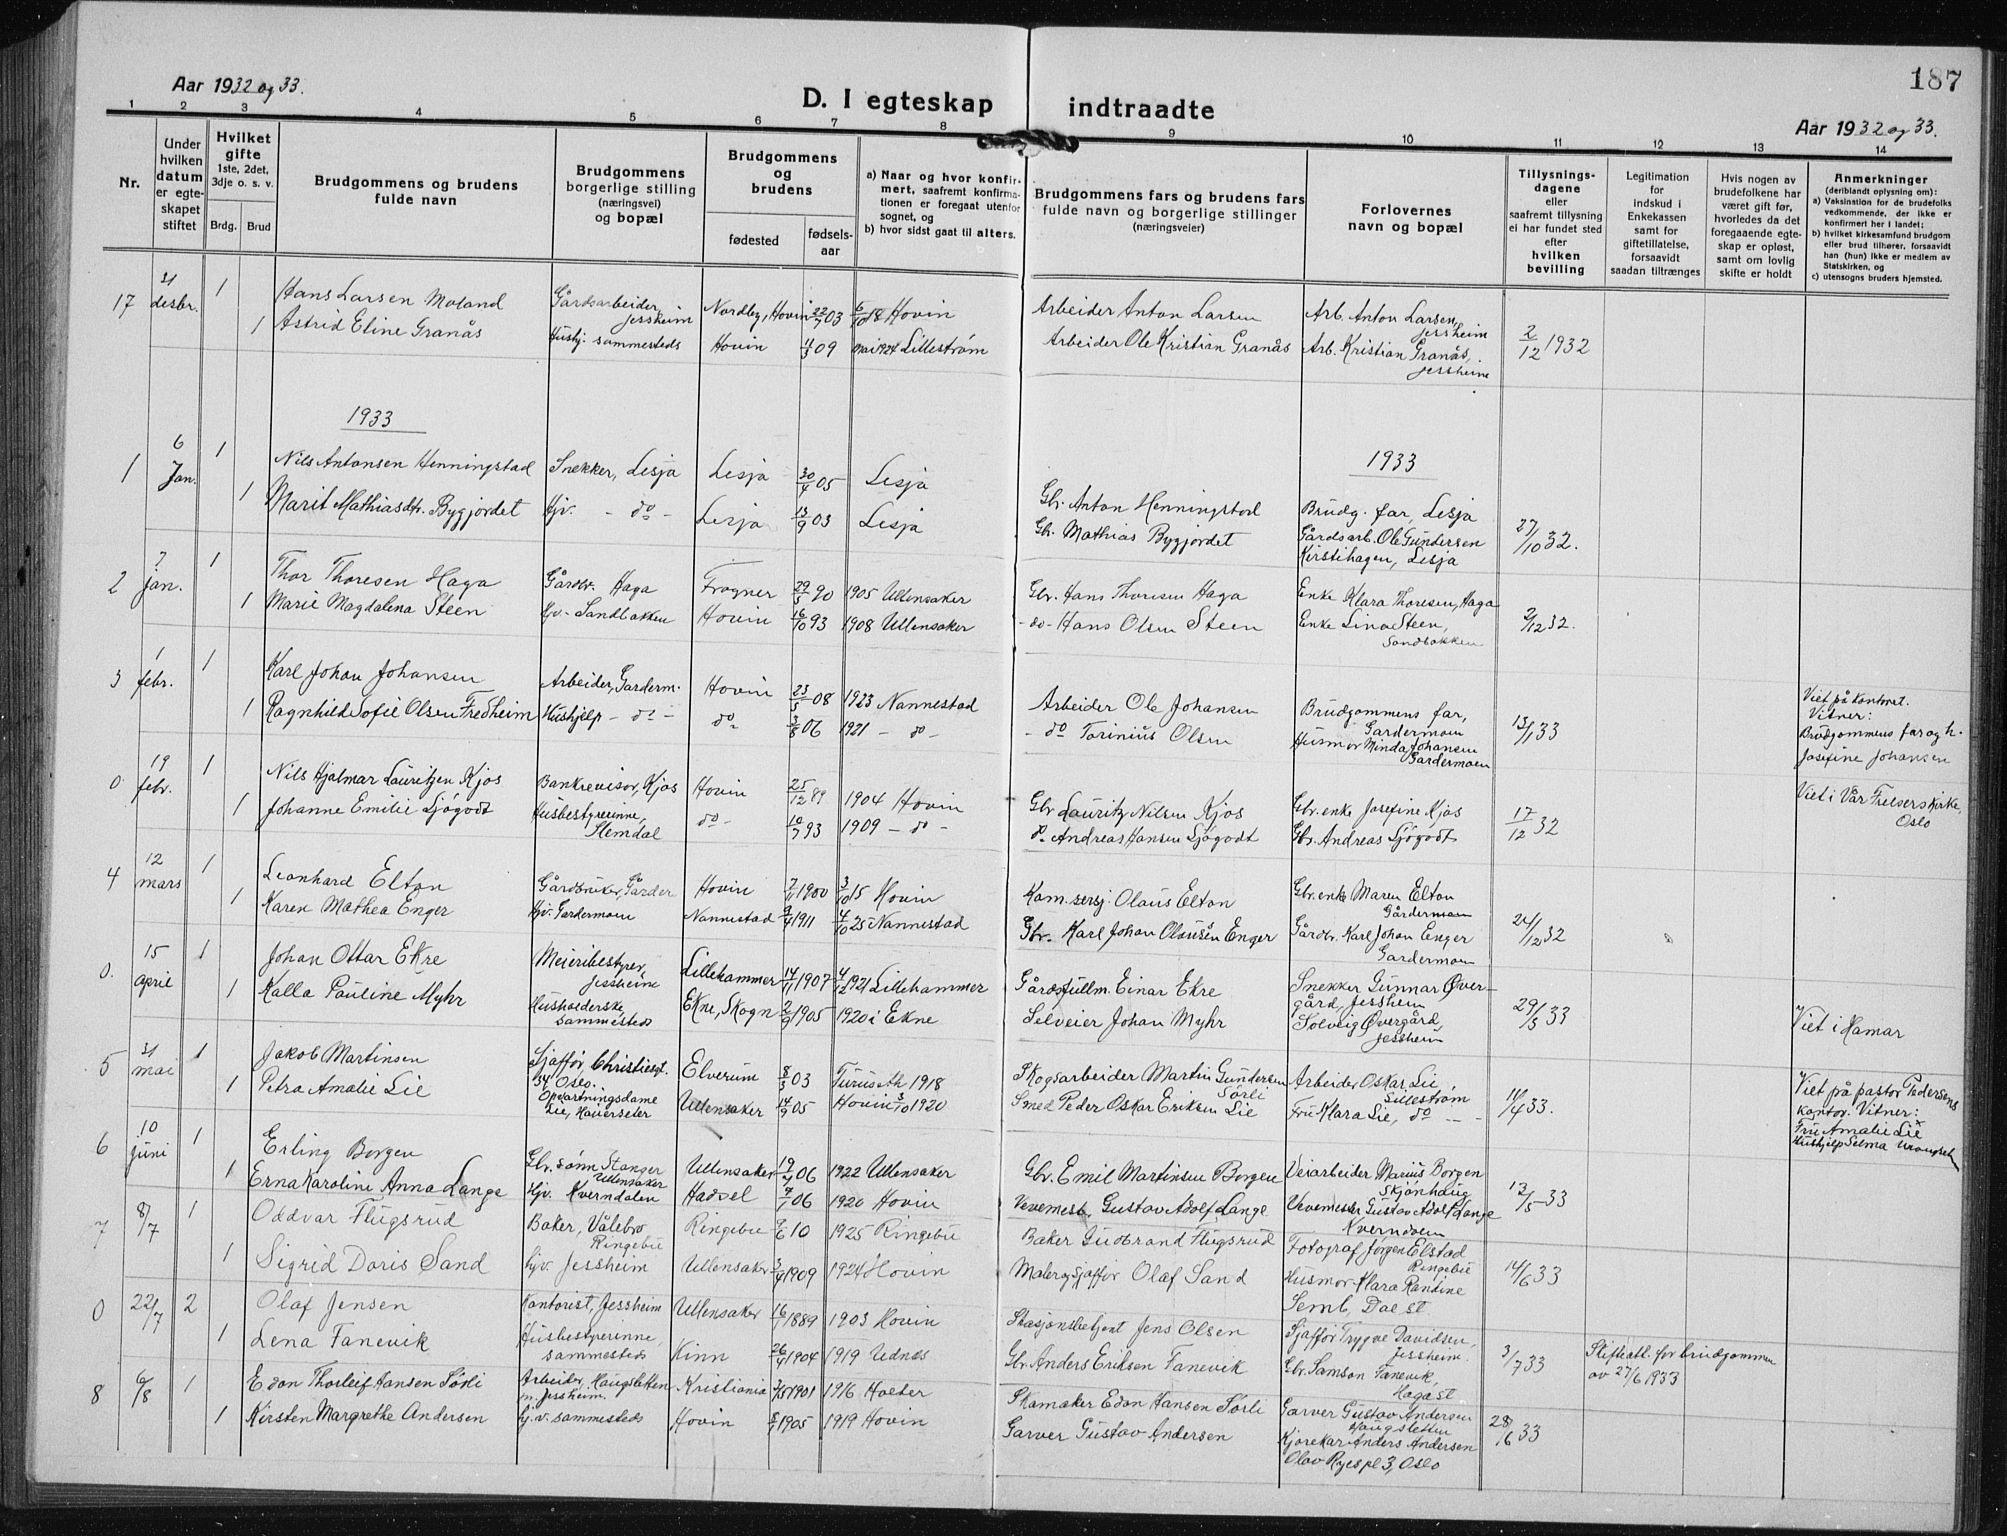 187
Aar 1932 og 33.
D. I egteskap indtraadte
Aar 1932 og 33.
1 2 3 4 5 6 7 8 9 10 11 12 13 14
Nr.
Under hvilken datum er egteskapet stiftet
Hvilket gifte 1ste, 2det, 3dje o. s. v.
Brdg. Brud
Brudgommens og brudens fulde navn
Brudgommens borgerlige stilling (næringsvei) og bopæl
Brudgommens og brudens
fødested
fødselsaar
a) Naar og hvor konfirmert, saafremt konfirmationen er foregaat utenfor sognet, og
b) hvor sidst gaat til alters.
Brudgommens fars og brudens fars fulde navn og borgerlige stillinger (næringsveier)
Forlovernes navn og bopæl
Tillysningsdagene eller saafremt tillysning ei har fundet sted efter hvilken bevilling
Legitimation for indskud i Enkekassen samt for giftetillatelse, forsaavidt saadan tiltrænges
Hvis nogen av brudefolkene har været gift før, hvorledes da det foregaaende egteskap er opløst, samt om lovlig skifte er holdt
Anmerkninger (deriblandt oplysning om):
a) Vaksination for de brudefolks vedkommende, der ikke er konfirmert her i landet;
b) hvilket kirkesamfund brudgom eller brud tilhører, forsaavidt han (hun) ikke er medlem av Statskirken, og
c) utensogns bruders hjemsted.
17 31 desbr. 1 Hans Larsen Moland Gårdsarbeider, Jessheim Nordby, Hovin 22/7 03 6/10 18 Hovin Arbeider Anton Larsen Arb. Anton Larsen, Jessheim 2/12 1932
1 Astrid Eline Granås Hushj. sammesteds Hovin 4/3 09 mai 1924 Lillestrøm Arbeider Ole Kristian Granås Arb. Kristian Granås, Jessheim
1933 1933
1 6 Jan. 1 Nils Antonsen Henningstad Snekker, Lesja Lesja 30/4 05 Lesja Gbr. Anton Henningstad Brudg. far, Lesja 27/10 32.
1 Marit Mathiasdtr. Bygjordet Hjv. - do - Lesja 13/9 03 Lesja Gbr. Mathias Bygjordet Gårdsarb. Ole Gundersen Kirstihagen, Lesja
2 7 jan. 1 Thor Thoresen Haga Gårdbr. Haga Frogner 29/5 90 1905 Ullensaker Gbr. Hans Thoresen Haga Enke Klara Thoresen, Haga 2/12 32.
1 Marie Magdalena Steen Hjv. Sandbakken Hovin 16/10 93 1908 Ullensaker - do - Hans Olsen Steen Enke Lina Steen, Sandbakken
3 1 febr. 1 Karl Johan Johansen Arbeider, Garderm. Hovin 23/5 08 1923 Nannestad Arbeider Ole Johansen Brudgommens far, Gardermoen 13/1 33 Viet på kontoret. Vitner: Brudgommens far og h. Josefine Johansen
1 Ragnhild Sofie Olsen Fredheim Hushjelp - do - do 3/8 06 1921 - do - - do Torinius Olsen Husmor Minda Johansen Gardermoen
0. 19 febr. 1 Nils Hjalmar Lauritzen Kjos Bankrevisor, Kjos Hovin 25/12 89 1904 Hovin Gbr. Lauritz Nilsen Kjos Gbr. enke Josefine Kjos 17/12 32 Viet i Vår Frelsers kirke, Oslo
1 Johanne Emilie Sjøgodt Husbestyrerinne, Slemdal do - 10/7 93 1909 - do - do. Andreas Hansen Sjøgodt Gbr. Andreas Sjøgodt
4 12 mars 1 Leonhard Elton Gårdbruker, Garder Hovin 7/11 1900 3/10 15 Hovin Kom. sersj. Olaus Elton Gbr. enke Maren Elton Gardermoen 24/12 32
1 Karen Mathea Enger Hjv. Gardermoen Nannestad 9/4 1911 4/10 25 Nannestad Gbr. Karl Johan Olausen Enger Gårdbr. Karl Johan Enger Gardermoen
0. 15 april 1 Johan Ottar Ekre Meieribestyrer, Jessheim Lillehammer 14/11 1907 1921 Lillehammer Gårdsfullm. Einar Ekre Snekker Gunnar Øvergård, Jessheim 29/3 33 Viet i Hamar
1 Kalla Pauline Myhr Husholderske, sammesteds Ekne, Skogn 2/9 1905 1920 i Ekne Selveier Johan Myhr Solveig Øvergård, Jessheim
5 31 mai 1 Jakob Martinsen Sjåffør, Christiesgt. 34, Oslo. Elverum 8/3 03 1918 Skogsarbeider Martin Gundersen Sørli Arbeider Oskar Lie Lillestrøm 11/4 33. Viet på pastor Pedersens kontor. Vitner: Fru Amalie Lie Hushjelp Selma
1 Petra Amalie Lie Opvartningsdame Lie, Hauerseter Ullensaker 14/9 05 Hovin 3/10 1920 Smed Peder Oskar Eriksen Lie Fru Klara Lie, do -
6 10 juni 1 Erling Borgen Gbr. sønn Stanger Ullensaker Ullensaker 19/4 06 1922 Ullensaker Gbr. Emil Martinsen Borgen Veiarbeider Marius Borgen Skjønhaug 12/5 33
1 Erna Karoline Anna Lange Hjv. Kverndalen Hadsel 9/7 06 1920 Hovin Vevemest. Gustav Adolf Lange Vevemester Gustav Adolf Lange Kverndalen
7 8/7 1 Oddvar Flugsrud Baker, Vålebro Ringebu Ringebu 9/6 10 1925 Ringebu Baker Gudbrand Flugsrud Fotograf Jørgen Elstad Ringebu 14/6 33
1 Sigrid Doris Sand hjv. Jessheim Ullensaker 3/4 1909 1924 Hovin Maler og sjåffør Olaf Sand Husmor Klara Randine Semb, Dal st.
0 22/7 2 Olaf Jensen Kontorist, Jessheim Ullensaker 16/1 1889 1903 Hovin Stasjonsbetjent Jens Olsen Sjåffør Trygve Davidsen, Jessheim. 3/7 33 Skifteatt. for brudgommen av 27/6 1933
1 Lena Fanevik Husbestyrerinne, sammesteds Kinn 26/4 1904 1919 Udnes Gbr. Anders Eriksen Fanevik Gbr. Samson Fanevik, Haga st.
8 6/8 1 Edon Thorleif Hansen Sørli Arbeider, Haugsletten pr. Jessheim. Kristiania 1901 1916 Holter Skomaker Edon Hansen Sørli Garver Gustav Andersen Haugsletten 28/6 33
1 Kirsten Margrethe Andersen hjv. sammesteds Hovin 1905 1919 Hovin Garver Gustav Andersen Kjørekar Anders Andersen Olav Ryes pl 3, Oslo